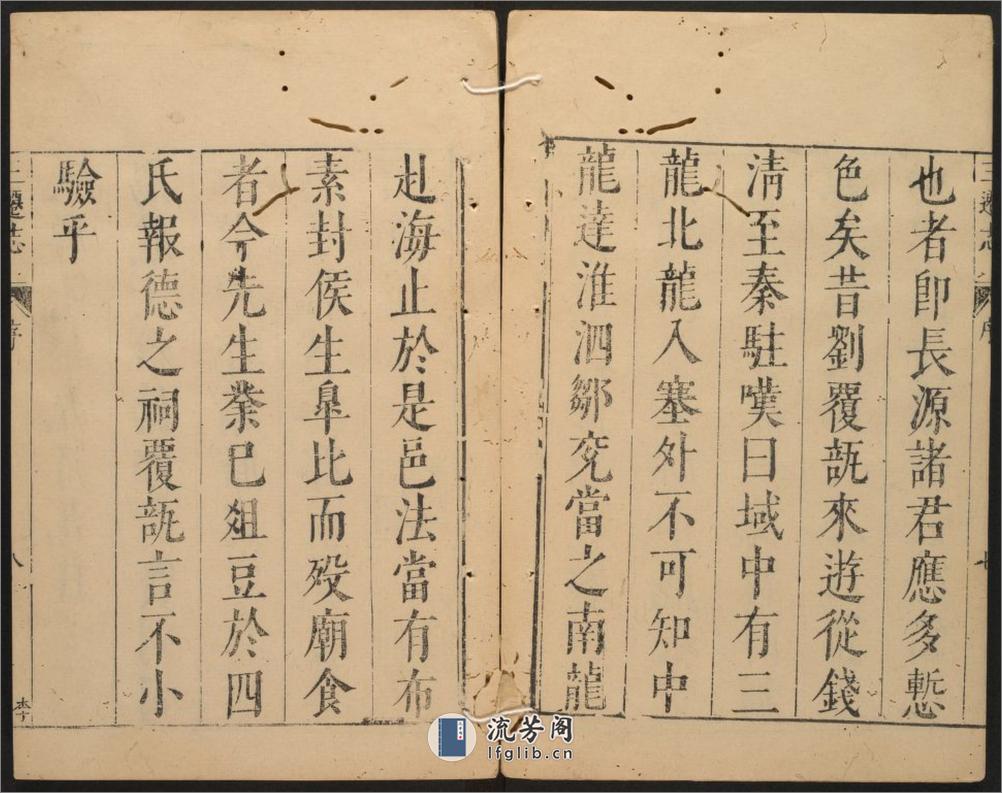 也者卽長源諸君應多慙
色矣昔劉覆瓿來遊從錢
淸至秦駐嘆曰域中有三
龍北龍入塞外不可知中
龍達淮泗鄒兖當之南龍
赴海止於是邑法當有布
素封侯生臯比而歿廟食
者今先生業已俎豆於四
氏報德之祠覆瓿言不小
驗乎
三遷志
序
七
三遷志
序
八
流芳阁
lfglib.cn